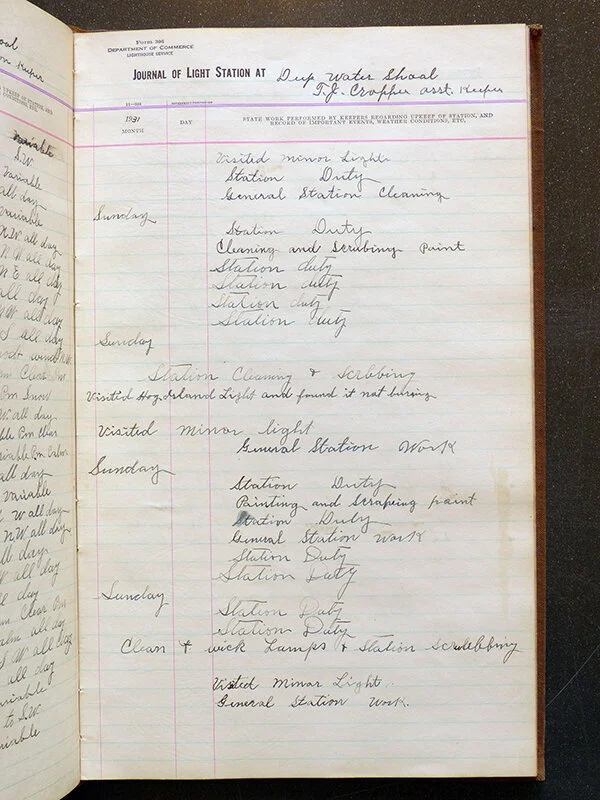 oal
Keeper
variable
S.W.
Variable
all day
Variable
N.W all day
N.W. all day
N E all day
all day
all day
S. all day
Pm Snow
W. all day
all day
Variable
W all day
N.W all day
all day
all day
day
Clear Pm
all day
all day
Variable
to S.W.
Variable
Form 306
DEPARTMENT OF COMMERCE
LIGHTHOUSE SERVICE
JOURNAL OF LIGHT STATION AT Deep Water Shoal
T.J. Cropper asst. Keeper
1931
MONTH
DAY
STATE WORK PERFORMED BY KEEPERS REGARDING UPKEEP OF STATION, AND
RECORD OF IMPORTANT EVENTS, WEATHER CONDITIONS, ETC.
Visited Minor Light
Station Duty
General Station Cleaning
Sunday
Station Duty
Cleaning and Scrubing Paint
Station duty
Station duty
Station duty
Station duty
Sunday
Station Cleaning & Scrbbing
Visitid Hog Island Light and found it not burning
Visited minor light
General Station Work
Sunday
Station Duty
Painting and Scrapeing paint
Station Duty
General Station Work
Station Duty
Station Duty
Sunday
Station Duty
Station Duty
Clean & wick Lamps & Station Scrubbing
Visted Minor Light
General Station Work.